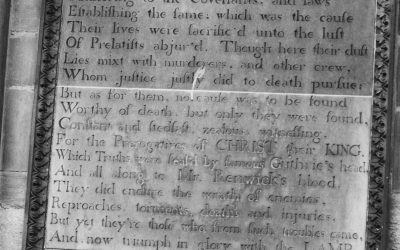 Adhering to the Covenants, and laws
Establishing the same; which was the cause
Their lives were sacrific'd unto the lust
Of Prelatists abjur'd. Though here their dust
Lies mixt with murderers, and other crew,
Whom justice justly did to death pursue:
But as for them, no cause was to be found
Worthy of death, but only they were found,
Constant and stedfast, zealous, witnessing,
For the Prerogatives of CHRIST their KING.
Which Truths were seal'd by famous Guthrie's head,
And all along to Mr. Renwick's blood.
They did endure the wrath of enemies,
Reproaches, torments, deaths and injuries.
But yet they're those who from such troubles came,
And, now triumph in glory with the LAMB.